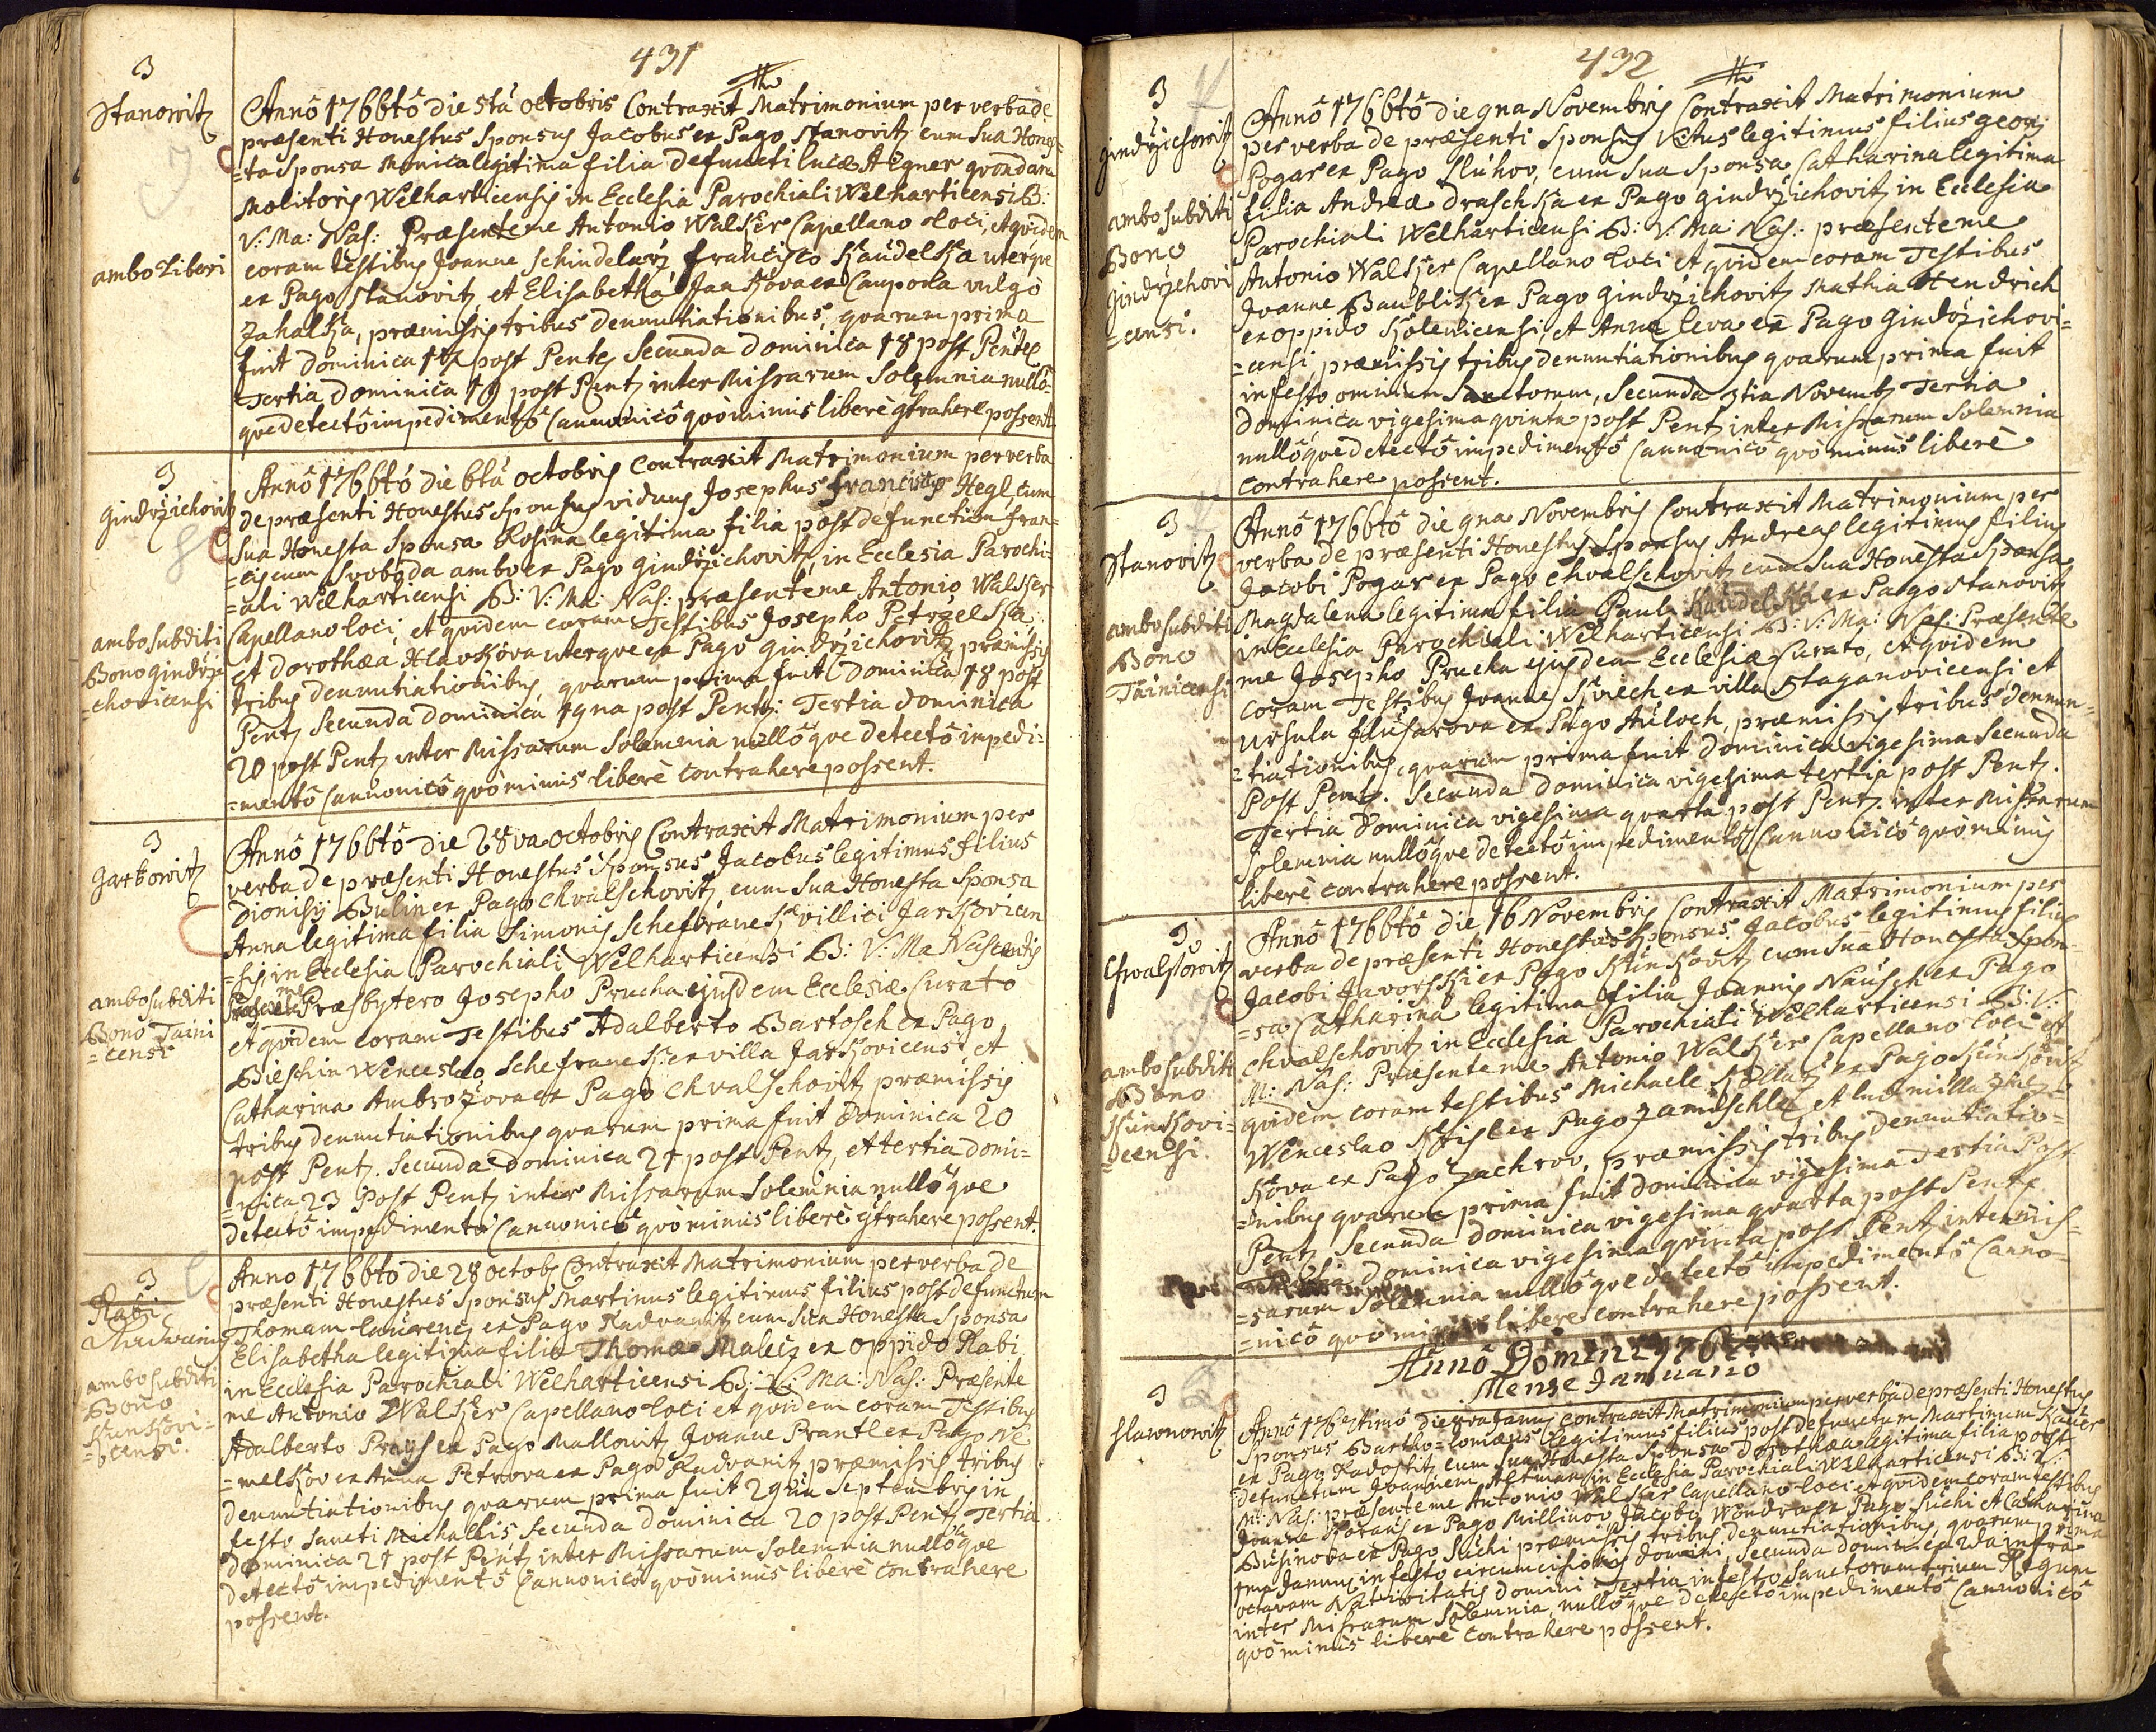 431
3
Stanovitz
ambo Liberi
Anno 1766tô die 5tâ octobris Contraxit Matrimonium per verba de
præsenti Honestus Sponsus Jacobus ex Pago Stanovitz cum Sua Hones=
=ta Sponsa Monica legitima filia defuncti lucæ Aigner quondam
Molitoris Welharticensis in Ecclesia Parochiali Welharticensi B:
V: Ma: Nas: Præsente me Antonio Walker Capellano loci, et quidem
coram testibus Joanne Schindelarz francisco Kaudelka uterque
ex Pago Stanovitz et Elisabetha Jankova ex Caupona vulgo
Zahalka, præmissis tribus denuntiationibus, quarum prima
fuit Dominica 17 post Pentec Secunda Dominica 18 post Pentec
Tertia Dominica 19 post Pent inter Missarum Solemnia nullô=
que detectô impedimentô Cannonicô quôminus liberè gtrahere possent.
3
Gindrzichovitz
ambo subditi
Bono gindrzi
=chovicensi
Anno 1766tô die 6tâ octobris Contraxit Matrimonium per verba
de præsenti Honestus Sponsus viduus Josephus franciscus Hegl cum
Sua Honesta Sponsa Rosina legitima filia post defunctum fran=
=ciscum Svoboda ambo ex Pago gindrzichovitz, in Ecclesia Parochi=
=ali Welharticensi B: V: Ma: Nas: præsente me Antonio Walker
Capellano loci, et quidem coram Testibus Josepho Petrzelka
et Dorothæa Hlavkova uterque ex Pago gindrzichovitz præmissis
tribus denuntiationibus, quarum prima fuit Dominica 18 post
Pent Secunda Dominica 19na post Pent: Tertia Dominica
20 post Pent inter Missarum Solemnia nullôque detectô impedi=
=mentô Cannonicô quôminus liberè Contrahere possent.
3
Jarkowitz
ambo subditi
Bono Taini
=censi
Anno 1766tô die 28va octobris Contraxit Matrimonium per
verba de præsenti Honestus Sponsus Jacobus legitimus filius
Dionisij Bulin ex Pago Chvalschovitz, cum Sua Honesta Sponsa
Anna legitima filia Simonis Schefranek villici Jarkovicen
=sis in Ecclesia Parochiali Welharticensi B: V: Ma Nascentis
me Præsbytero Josepho Prucha ejusdem Ecclesiæ Curato
et quidem coram Testibus Adalberto Bartosch ex Pago
Bieschin Wenceslao Schefranek ex villa Jarkovicensi et
Catharina Ambrozova ex Pago Chvalschovitz præmissis
tribus denuntiationibus quarum prima fuit Dominica 20
post Pent. Secunda Dominica 21 post Pent, et tertia domi=
=nica 23 post Pent inter Missarum Solemnia nullôque
detectô impedimentô Cannonicô quôminus liberè gtrahere possent.
3
Rabi
Radwanitz
ambo subditi
Bono
Kunkovi=
=censi.
Anno 1766to die 28 octob Contraxit Matrimonium per verba de
præsenti Honestus Sponsus Martinus legitimus filius post defunctum
Thomam laurencz ex Pago Radvanitz cum Sua Honesta Sponsa
Elisabetha legitima filia Thomæ Malecz ex oppido Rabi
in Ecclesia Parochiali Welharticensi B: V: Ma: Nas: Præsente
me Antonio Walker Capellano loci et quidem coram Testibus
Adalberto Prays ex Pago Mallonitz Joanne Prantl ex Pago Ne
=melkov ex Anna Petrova ex Pago Radvanitz præmissis tribus
denuntiationibus quarum prima fuit 29na Septembris in
festo Sancti Michaelis, Secunda Dominica 20 post Pent, Tertia
Dominica 21 post Pent inter Missarum Solemnia nullôque
detectô impedimentô Cannonicô quôminus liberè contrahere
possent.
432
3
gindrzichowitz
ambo subditi
Bono
Gindrzichovi
=censi.
Anno 1766tô die 9na Novembris Contraxit Matrimonium
per verba de præsenti Sponsus Vitus legitimus filius georgij
Pogar ex Pago Sluhov, cum Sua Sponsa Catharina legitima
filia Andreæ Draschka ex Pago gindrzichovitz in Ecclesia
Parochiali Welharticensi B: V: Ma: Nas: præsente me
Antonio Walker Capellano loci et quidem coram Testibus
Joanne Baublik ex Pago Gindrzichovitz Mathia Hendrich
ex oppido Kolenicensi, et Anna leva ex Pago Gindrzichovi=
=censi, præmissis tribus denuntiationibus quarum prima fuit
in festo omnium Sanctorum, Secunda 3tia Novemb Tertia
Dominica vigesima quinta post Pent inter Missarum Solemnia
nullôque detectô impedimentô Cannonicô quôminus liberè
contrahere possent.
3
Stanovitz
ambo subditi
Bono
Tainicensi
Anno 1766tô die 9na Novembris Contraxit Matrimonium per
verba de præsenti Honestus Sponsus Andreas legitimus filius
Jacobi Pogar ex Pago Chvalschovitz cum Sua Honesta Sponsa
Magdalena legitima filia Pauli Kaudelka ex Pago Stanovitz
in Ecclesia Parochiali Welharticensi B: V: Ma: Nas: Præsente
me Josepho Prucha ejusdem Ecclesiæ Curato, et quidem
Coram Testibus Joanne Kviech ex villa Staganovicensi et
Ursula flusarova ex Pago Auloch, præmissis tribus denun=
=tiationibus, quarum prima fuit Dominica vigesima Secunda
Post Pent. Secunda Dominica vigesima tertia post Pent.
Tertia Dominica vigesima quarta post Pent. inter Missarum
Solemnia nullôque detectô impedimentô Cannonicô quôminus
liberè contrahere possent.
3
Chvalssowitz
ambo subditi
Bono
Kunkovi=
=censi.
Anno 1766tô die 16 Novembris Contraxit Matrimonium per
verba de præsenti Honestus Sponsus Jacobus legitimus filius
Jacobi Javorski ex Pago Kunkovitz cum Sua Honesta Spon=
=sa Catharina legitima filia Joannis Nausch ex Pago
Chvalschovitz in Ecclesia Parochiali Welharticensi B: V:
M: Nas: Præsente me Antonio Walker Capellano loci et
quidem coram testibus Michaele Kollarz ex Pago Kunkovitz
Wenceslao Kfisl ex Pago Zamischle et ludmilla
kova ex Pago Zachrov, præmissis tribus denuntiatio=
=nibus quarum prima fuit Dominica vigesima Tertia Post
Pent Secunda Dominica vigesima quarta post Pent
Dominica vigesima quinta post Pent inter Mis=
=sarum Solemnia nullôque detectô impedimentô Canno=
=nicô quôminus liberè contrahere possent.
Annô Domini
Mense Januario
3
Hlawnowitz
Anno 1767timô die Janu contraxit Matrimonium per verba de præsenti Honestus
Sponsus Bartho=lomæus legitimus filius post defunctum Martinum
ex Pago Radostitz cum Sua Honesta Sponsa Dorothæa legitima filia post
defunctum Joannem Altman in Ecclesia Parochiali Welharticensi B: V:
M: Nas: præsente me Antonio Walker Capellano loci et quidem coram testibus
Joanne ex Pago Millinov Jacobo Wondra ex Pago Suchi et Catharina
Businova ex Pago Suchi præmissis tribus denuntiationibus, quarum prima
1ma Januarii in festo circumcisionis Domini, Secunda Dominica infra
octavam Nativitatis Domini Tertia in festo Sanctorum trium Regum
inter Missarum Solemnia, nullôque detectô impedimentô Cannonicô
quôminus liberè contrahere possent.